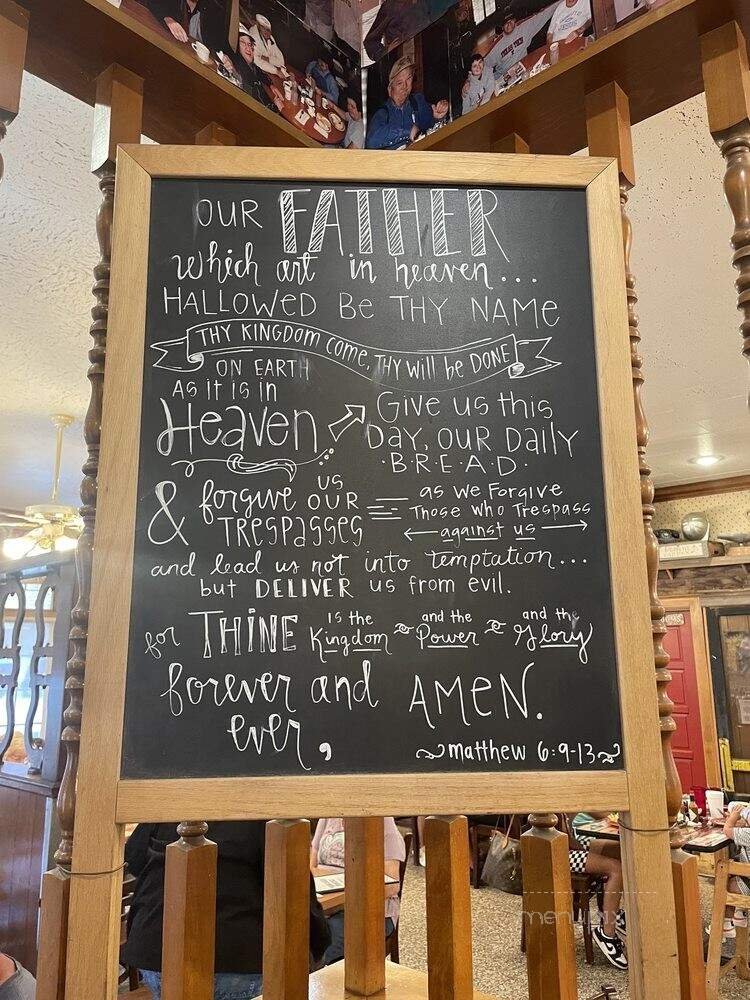 OUR FATHER
which art in heaven...
HALLOWED Be THY NAMe
THY KINGDOM come, THY will be DONE
ON EARTH
AS it is in
Heaven
Give us this
DAY, OUR DAily
·B·R·E·A·D·
& forgive us OUR
TRESPASSES
as we Forgive
Those who Trespass
against us
and lead us not into temptation...
but DELIVER us from evil.
for THINE is the Kingdom and the Power and the Glory
forever and
ever,
AMEN.
matthew 6:9-13
menupix